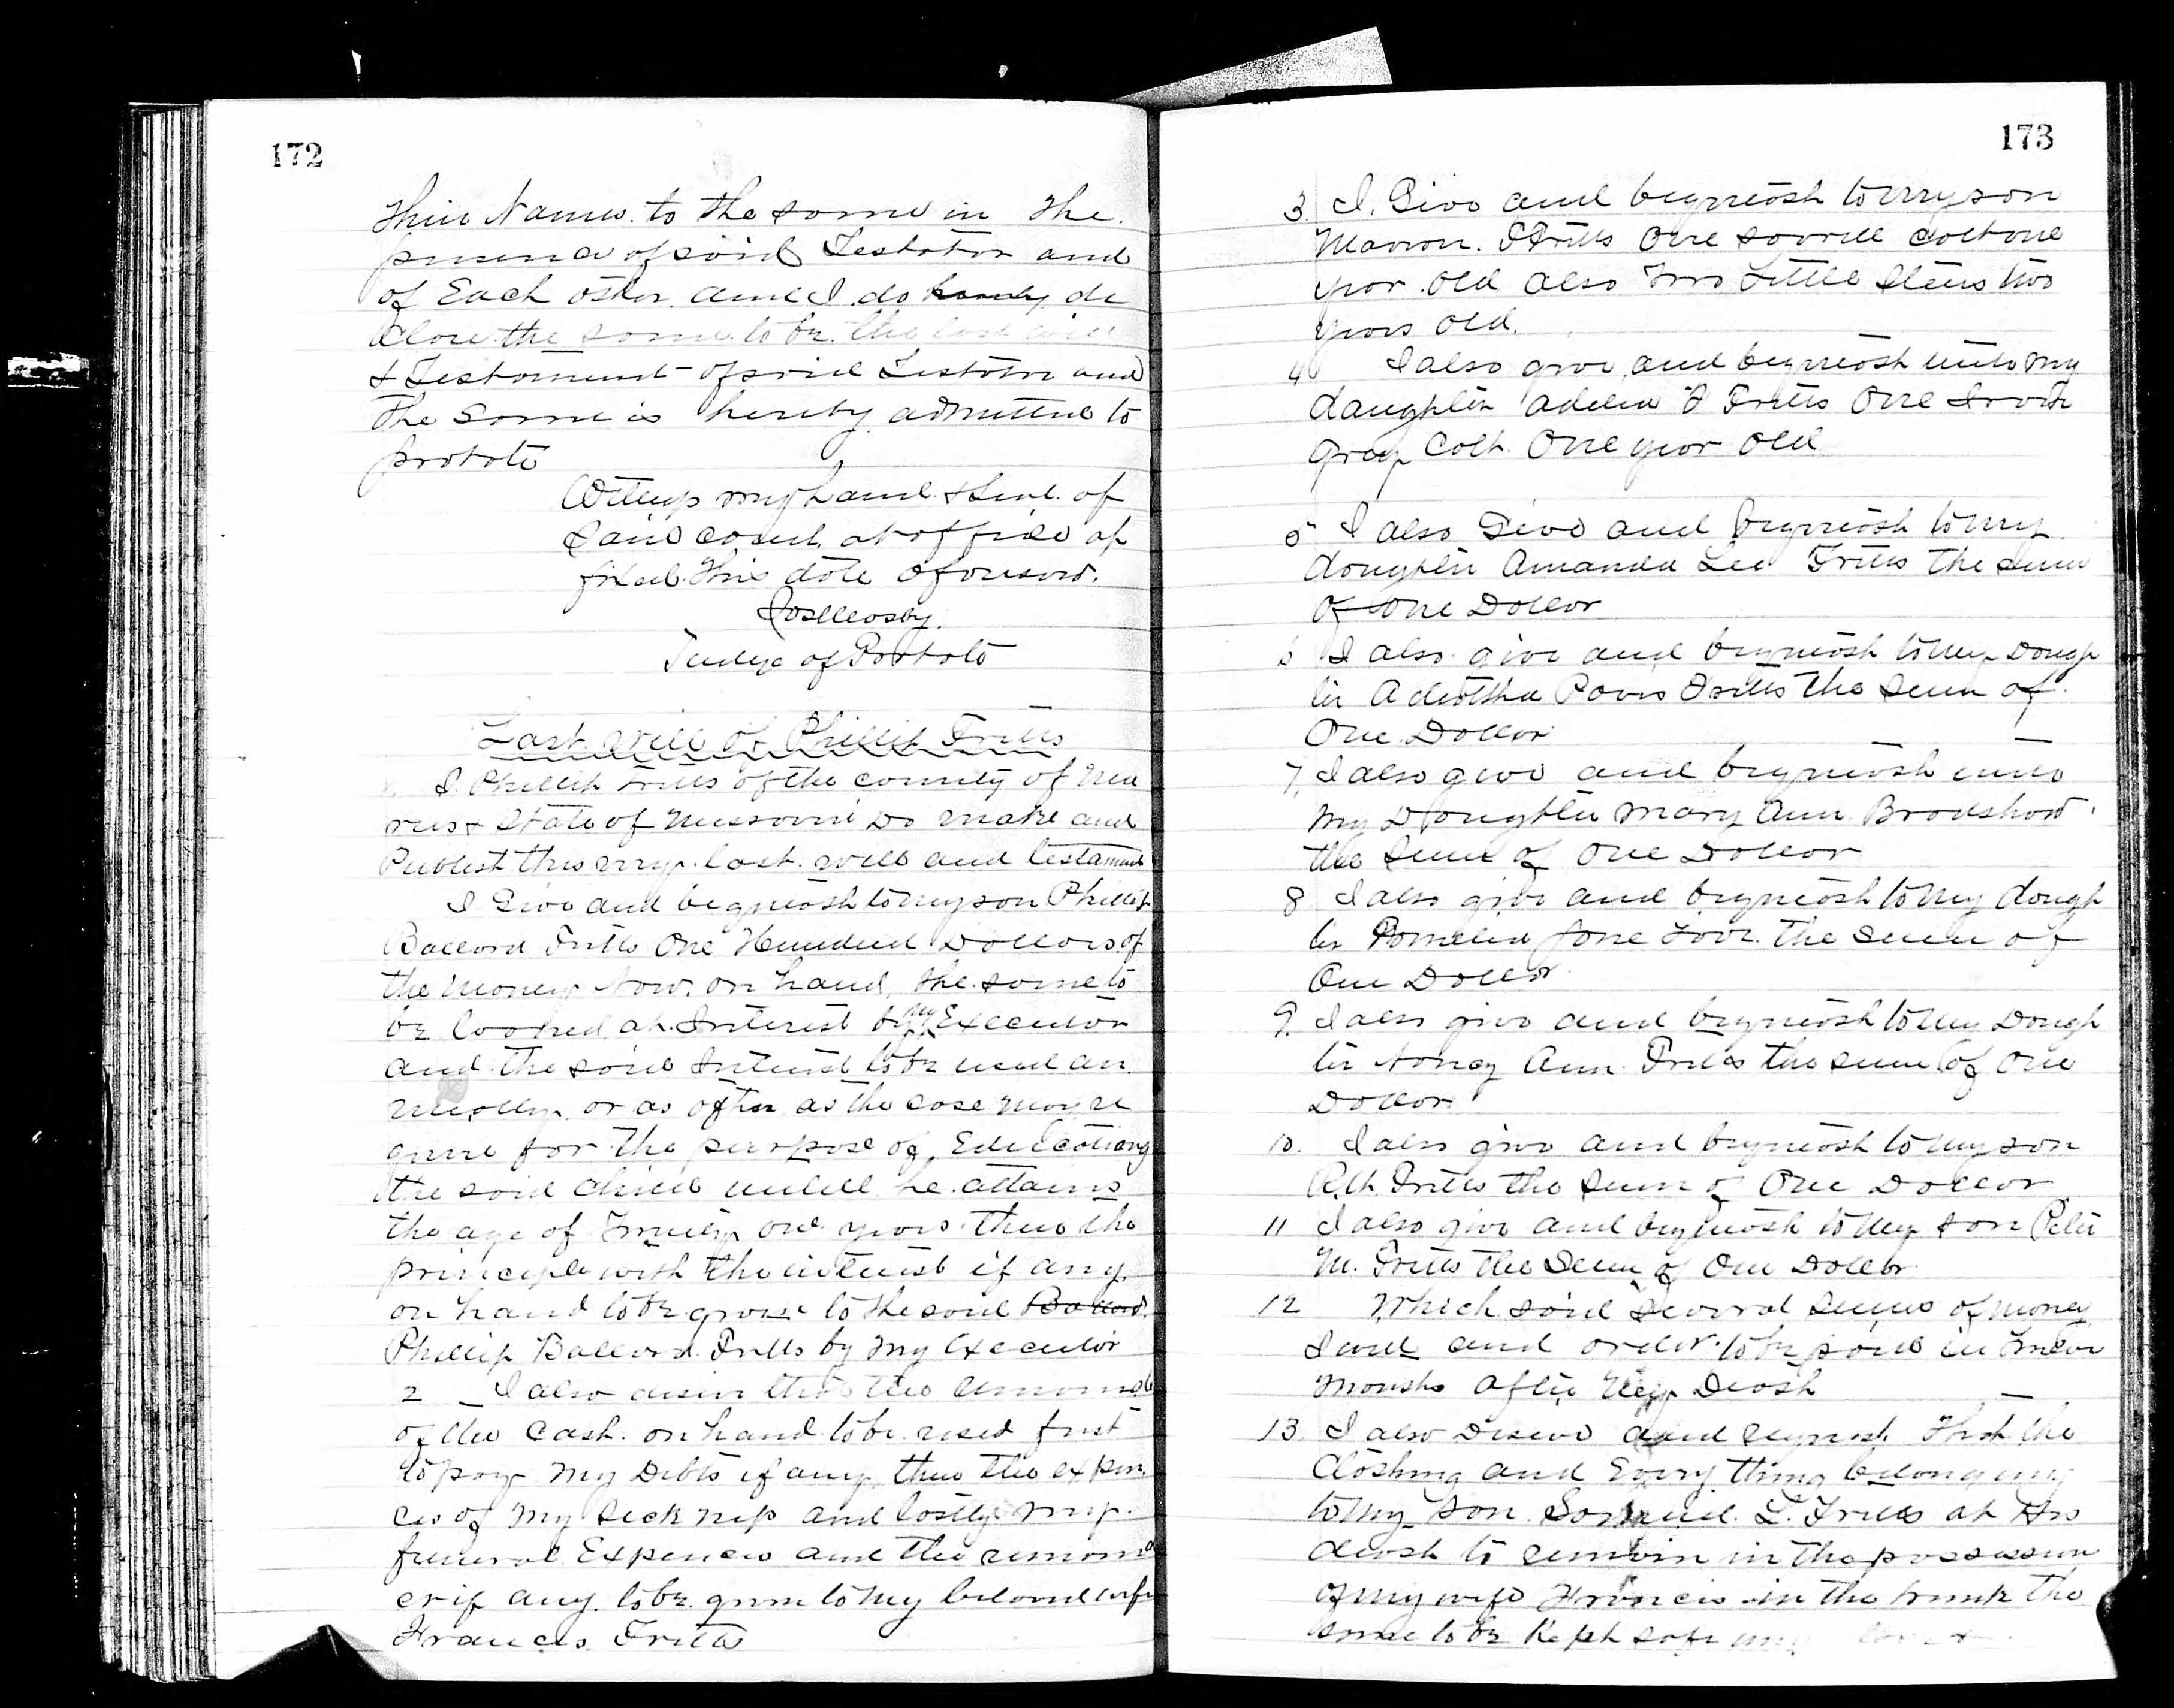 172
their Names to the same in the
presence of said Testator and
of Each other and I do hereby de
clare the same to be the last will
& Testament of said Testator and
the same is hereby admitted to
probate
Witness my hand & Seal of
Said court at office af
fixed this date aforesaid.
Jos Mosby
Judge of Probate
Last will of Phillip Fritts
I Phillip Fritts of the county of
& State of Missouri Do make and
Publish this my last will and testament
I Give and bequeath to my son Phillip
Ballard Fritts One Hundred Dollars of
the money Now on hand, the same to
be loaned at Interest by my Executor
and the said Interest to be used an
nually or as often as the case may re
quire for the purpose of Educationg
the said child untill he attains
the age of Twenty one years then the
principle with the interest if any
on hand to be given to the said Ballard
Phillip Ballard Fritts by my Executor
2 I also desire that the remainde
of the Cash on hand to be used first
to pay my Debts if any then the expen
ces of my sickness and lastly my
funeral Expences and the remaind
er if any to be given to my beloved wife
Frances Fritts
173
3. I Give and bequeath to my son
Marion Fritts One sorrell colt one
year old also Two Little Steers two
years old.
4 I also give and bequeath unto my
daughter Adelia F Fritts One Iron
gray Colt One year old
5 I also Give and bequeath to my
daughter Amanda Lee Fritts the sum
of One Dollar
6 I also give and bequeath to my Daugh
ter Fritts the sum of
One Dollar
7. I also give and bequeath unto
my Daughter Mary Ann Bradshaw
the sum of One Dollar
8 I also give and bequeath to my daugh
ter Pamelia Jane the sum of
One Dollar
9. I also give and bequeath to my Daugh
ter Nancy Ann Fritts the sum of One
Dollar
10. I also give and bequeath to my son
R.H. Fritts the sum of One Dollar
11 I also give and bequeath to my son Peter
M. Fritts the Sum of One Dollar
12 Which said several sums of money
I will and order to be paid in Twelve
months after my Death
13. I also Desire and request that the
Clothing and Every thing belonging
to my son Samuel L. Fritts at his
death to remain in the possession
of my wife Francis in the trunk the
same to be kept safe